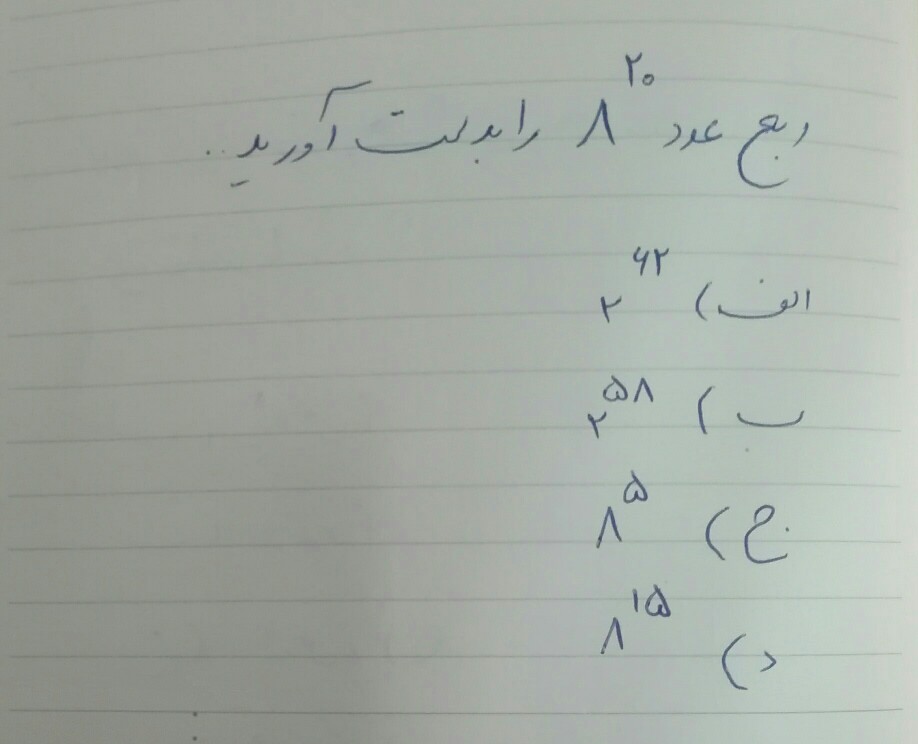 ربع عدد ۸^۲۰ را بدست آورید.
الف) ۲^۶۲
ب) ۲^۵۸
ج) ۸^۵
د) ۸^۱۵